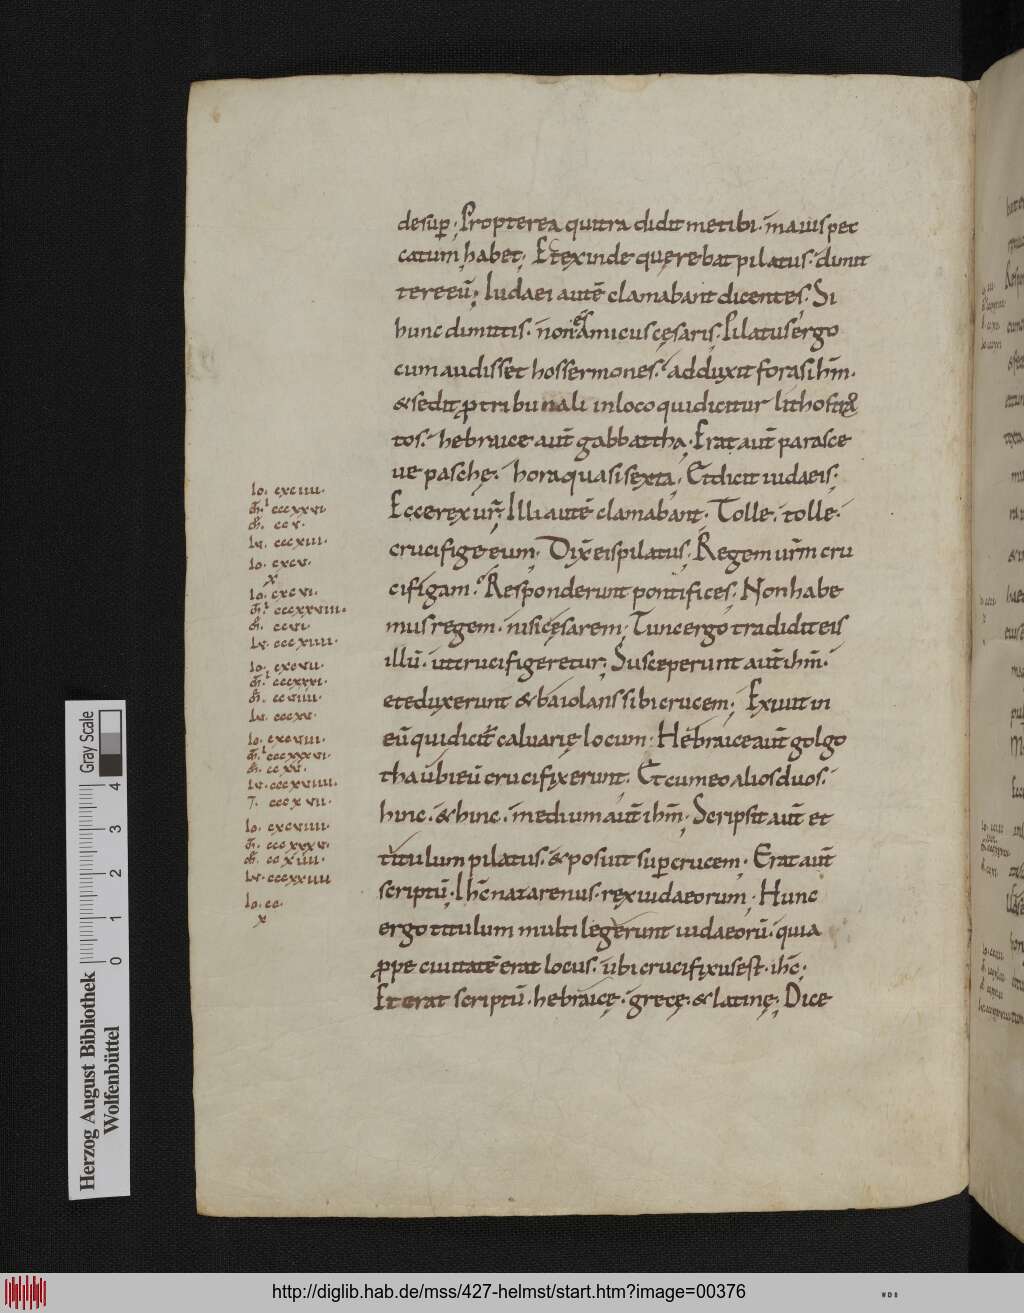 desup̄. Propterea qui tradidit me tibi. maius pec
catum habet; Et exinde querebat pilatus. dimit
tere eū; Iudaei autē clamabant dicentes. Si
hunc dimittis. non es amicus cęsaris; Pilatus ergo
cum audisset hos sermones. adduxit foras ih̄m.
& sedit ꝓ tribunali in loco qui dicitur lithostro
tos. hebraice aut̄ gabbattha; Erat aut̄ parasce
ue paschę. hora quasi sexta; Et dicit iudaeis;
Ecce rex ur̄; Illi autē clamabant. Tolle. tolle.
crucifige eum; Dix̄ eis pilatus; Regem ur̄m cru
cifigam. Responderunt pontifices; Non habe
mus regem. nisi cęsarem; Tunc ergo tradidit eis
illū. ut crucifigeretur; Susceperunt aut̄ ih̄m.
et eduxerunt & baiolans sibi crucem; Exiuit in
eū qui dicit̄ caluarię locum. Hebraice aut̄ golgo
tha ubi eū crucifixerunt. Et cum eo alios duos.
hinc. & hinc. medium aut̄ ih̄m; Scripsit aut̄ et
titulum pilatus. & posuit sup̄ crucem; Erat aut̄
scriptū; Ih̄c nazarenus. rex iudaeorum; Hunc
ergo titulum multi legerunt iudaeorū. quia
ꝓpe ciuitatē erat locus. ubi crucifixus est. ih̄c;
Et erat scriptū. hebraicę. grecę. & latinę; Dice
Io. cxciiii.
m̄. cccxxvi
m̄. ccv.
lu. cccxiii.
Io. cxcv.
x
Io. cxcvi.
m̄. cccxxviii.
m̄. ccvi.
lu. cccxiiii.
Io. cxcvii.
m̄. cccxxxi.
m̄. ccviiii.
lu. cccxv.
Io. cxcviii.
m̄. cccxxxvi.
m̄. ccxv.
lu. cccxviiii.
7. cccxvii.
Io. cxcviiii.
m̄. cccxxxv.
m̄. ccxiiii.
lu. cccxxiiii
Io. cc.
x
Gray Scale
0 1 2 3 4
Herzog August Bibliothek
Wolfenbüttel
http://diglib.hab.de/mss/427-helmst/start.htm?image=00376